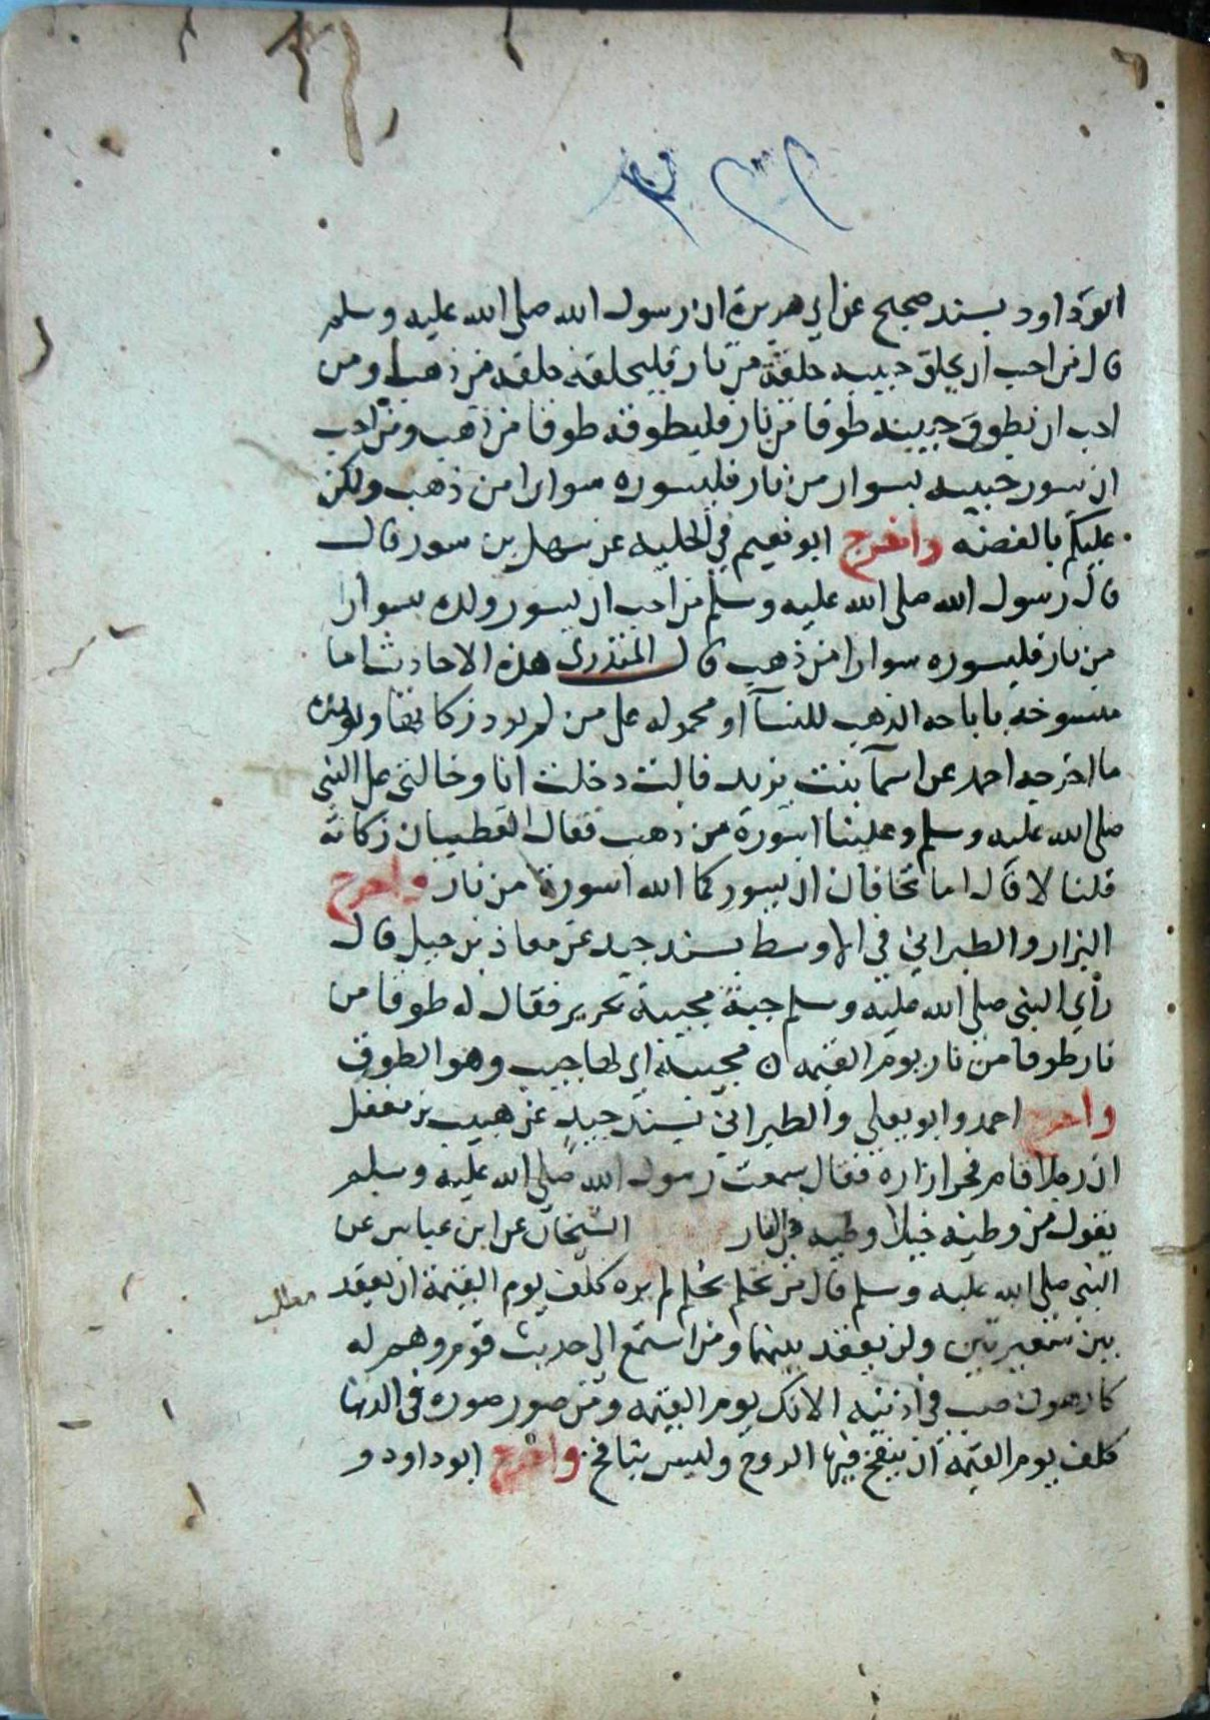 ابو داود بسند صحيح عن ابي هريرة ان رسول الله صلى الله عليه وسلم
قال من احب ان يحلق حبيبه حلقة من نار فليحلقه حلقه من ذهب ومن
احب ان يطوق حبيبه طوقا من نار فليطوقه طوقا من ذهب ومن احب
ان يسور حبيبه بسوار من نار فليسوره سوارا من ذهب ولكن
عليكم بالفضه واخرج ابو نعيم في الحليه عن سهل بن سور قال
قال رسول الله صلى الله عليه وسلم من احب ان يسور ولده سوارا
من نار فليسوره سوارا من ذهب قال المنذري هذه الاحاديث اما
منسوخه باباحه الذهب للنسآ او محموله على من لم يود زكاتها ويويده
ما اخرجه احمد عن اسمآ بنت يزيد قالت دخلت انا وخالتي على النبي
صلى الله عليه وسلم وعلينا اسورة من ذهب فقال اتعطيان زكاته
قلنا لا قال اما تخافان ان يسوركما الله اسورة من نار واخرج
البزار والطبراني في الاوسط بسند جيد عن معاذ بن جبل قال
رأي النبي صلى الله عليه وسلم جبة مجيبة بحرير فقال له طوقا من
نار طوقا من نار يوم القيمه ه مجيبة اي لها جيب وهو الطوق
واخرج احمد وابو يعلي والطبراني بسند جيد عن هبيب بن مغفل
ان رجلا قام فجر ازاره فقال سمعت رسول الله صلى الله عليه وسلم
يقول من وطيه خيلا وطيه في النار الشيخان عن ابن عباس عن
النبي صلى الله عليه وسلم قال من تحلم بحلم لم يره كلف يوم القيمة ان يعقد
مطلب
بين شعيرتين ولن يعقد بينهما ومن استمع الى حديث قوم وهم له
كارهون صب في اذنيه الانك يوم القيمه ومن صور صوره في الدنيا
كلف يوم القيمة ان ينفخ فيها الروح وليس بنافخ واخرج ابو داود و